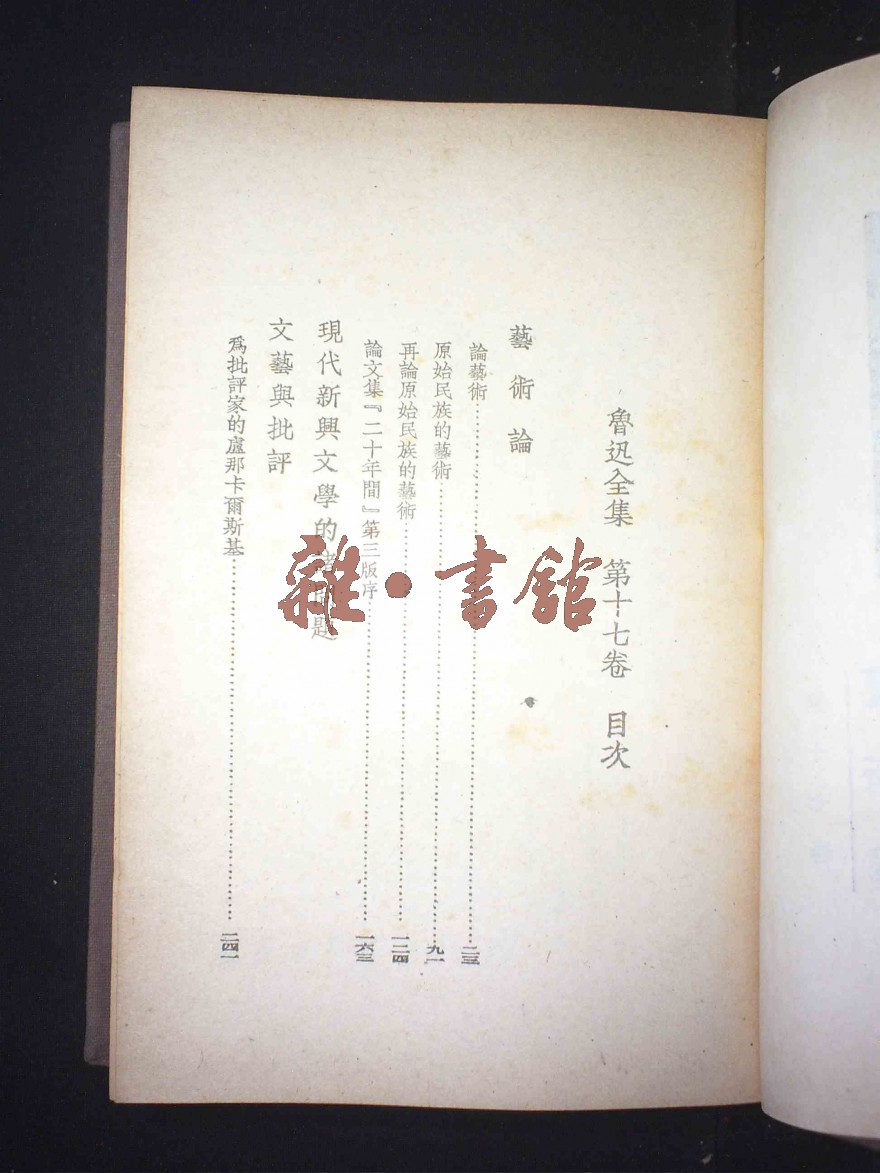 魯迅全集 第十七卷 目次
藝術論
論藝術……二三
原始民族的藝術……九一
再論原始民族的藝術……一二四
論文集『二十年間』第三版序……一六三
現代新興文學的諸問題
文藝與批評
為批評家的盧那卡爾斯基……二四一
雜·書館